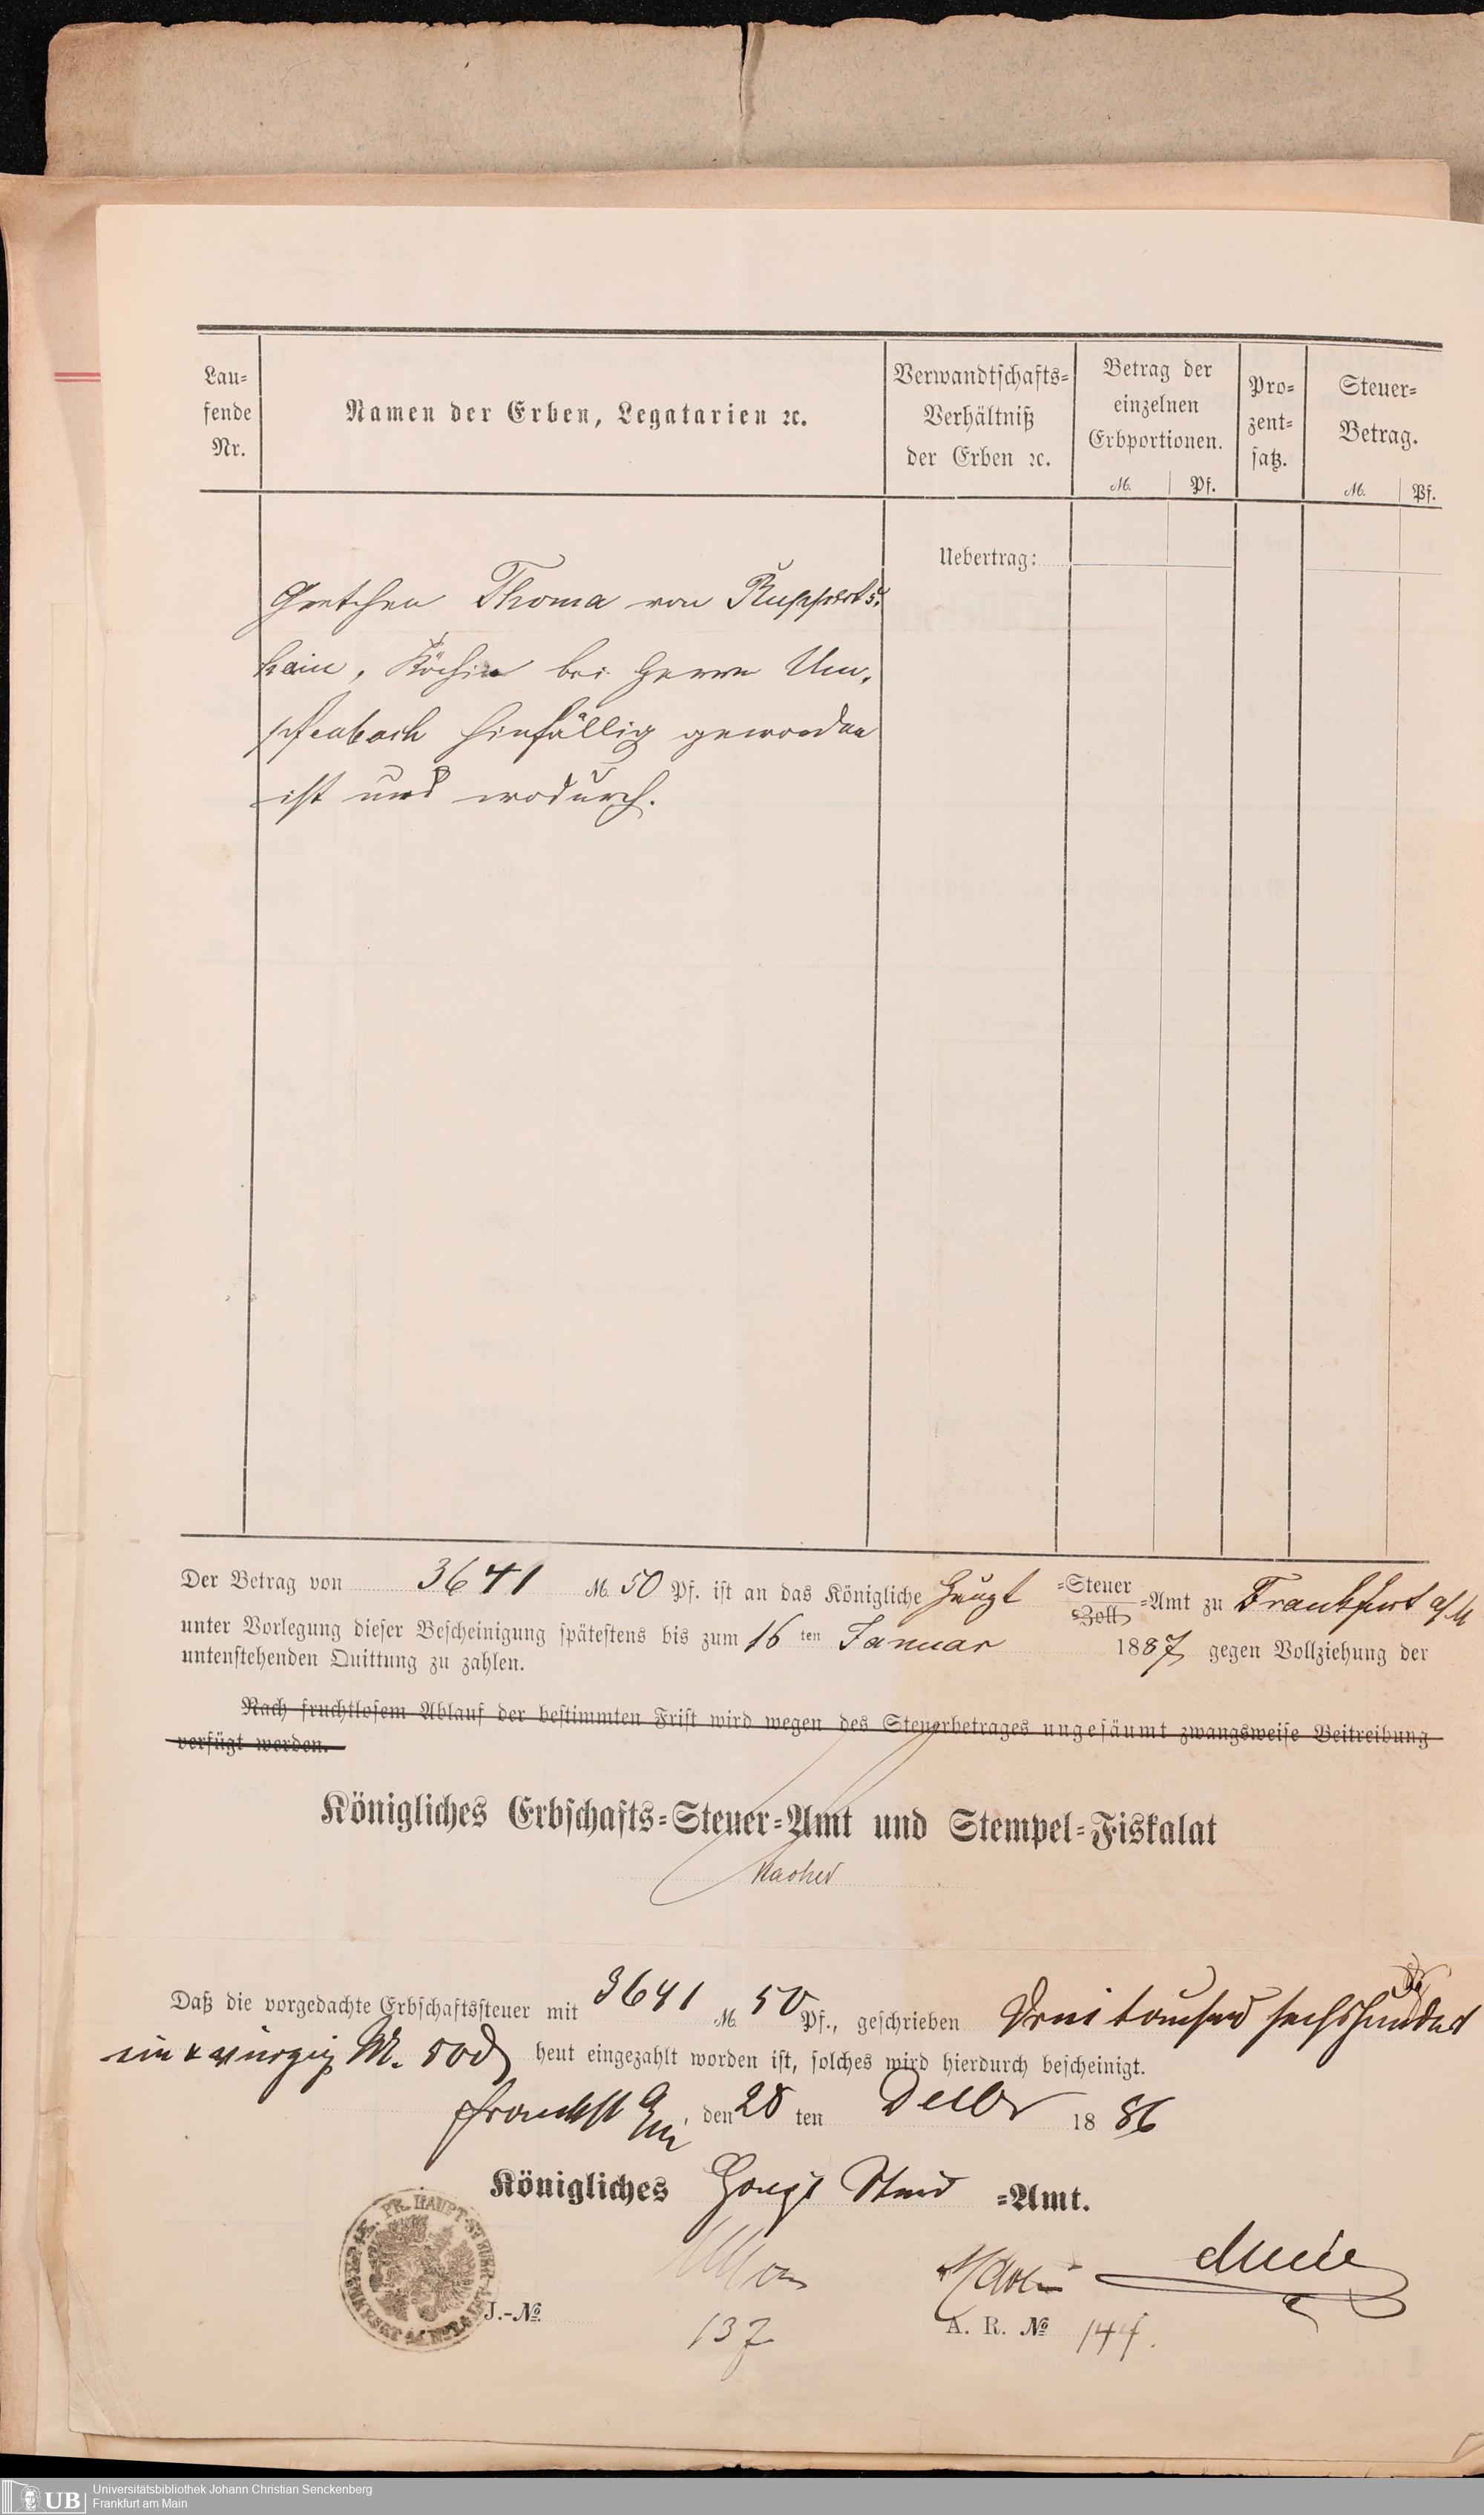 Lau=
fende
Nr.
Namen der Erben, Legatarien ꝛc.
Verwandtschafts=
Verhältniß
der Erben ꝛc.
Betrag der
einzelnen
Erbportionen.
M. Pf.
Pro=
zent=
satz.
Steuer=
Betrag.
M. Pf.
Uebertrag:
Gretchen Thoma von Rupperts=
hain, Köchin bei Herrn Um,
pfenbach hinfällig geworden
ist und wodurch.
Der Betrag von 3641 M. 50 Pf. ist an das Königliche Haupt =Steuer
Zoll =Amt zu Frankfurt a/M
unter Vorlegung dieser Bescheinigung spätestens bis zum 16 ten Januar 1887 gegen Vollziehung der
untenstehenden Quittung zu zahlen.
Nach fruchtlosem Ablauf der bestimmten Frist wird wegen des Steuerbetrages ungesäumt zwangsweise Beitreibung
verfügt werden.
Königliches Erbschafts=Steuer=Amt und Stempel=Fiskalat
Daß die vorgedachte Erbschaftssteuer mit 3641 M. 50 Pf., geschrieben Drei tausend sechshundert
ein & vierzig M. 50 d heut eingezahlt worden ist, solches wird hierdurch bescheinigt.
den 28 ten Decbr 1886
Königliches Haupt Steuer =Amt.
J.-No. 137
A. R. No 144.
UB
Universitätsbibliothek Johann Christian Senckenberg
Frankfurt am Main